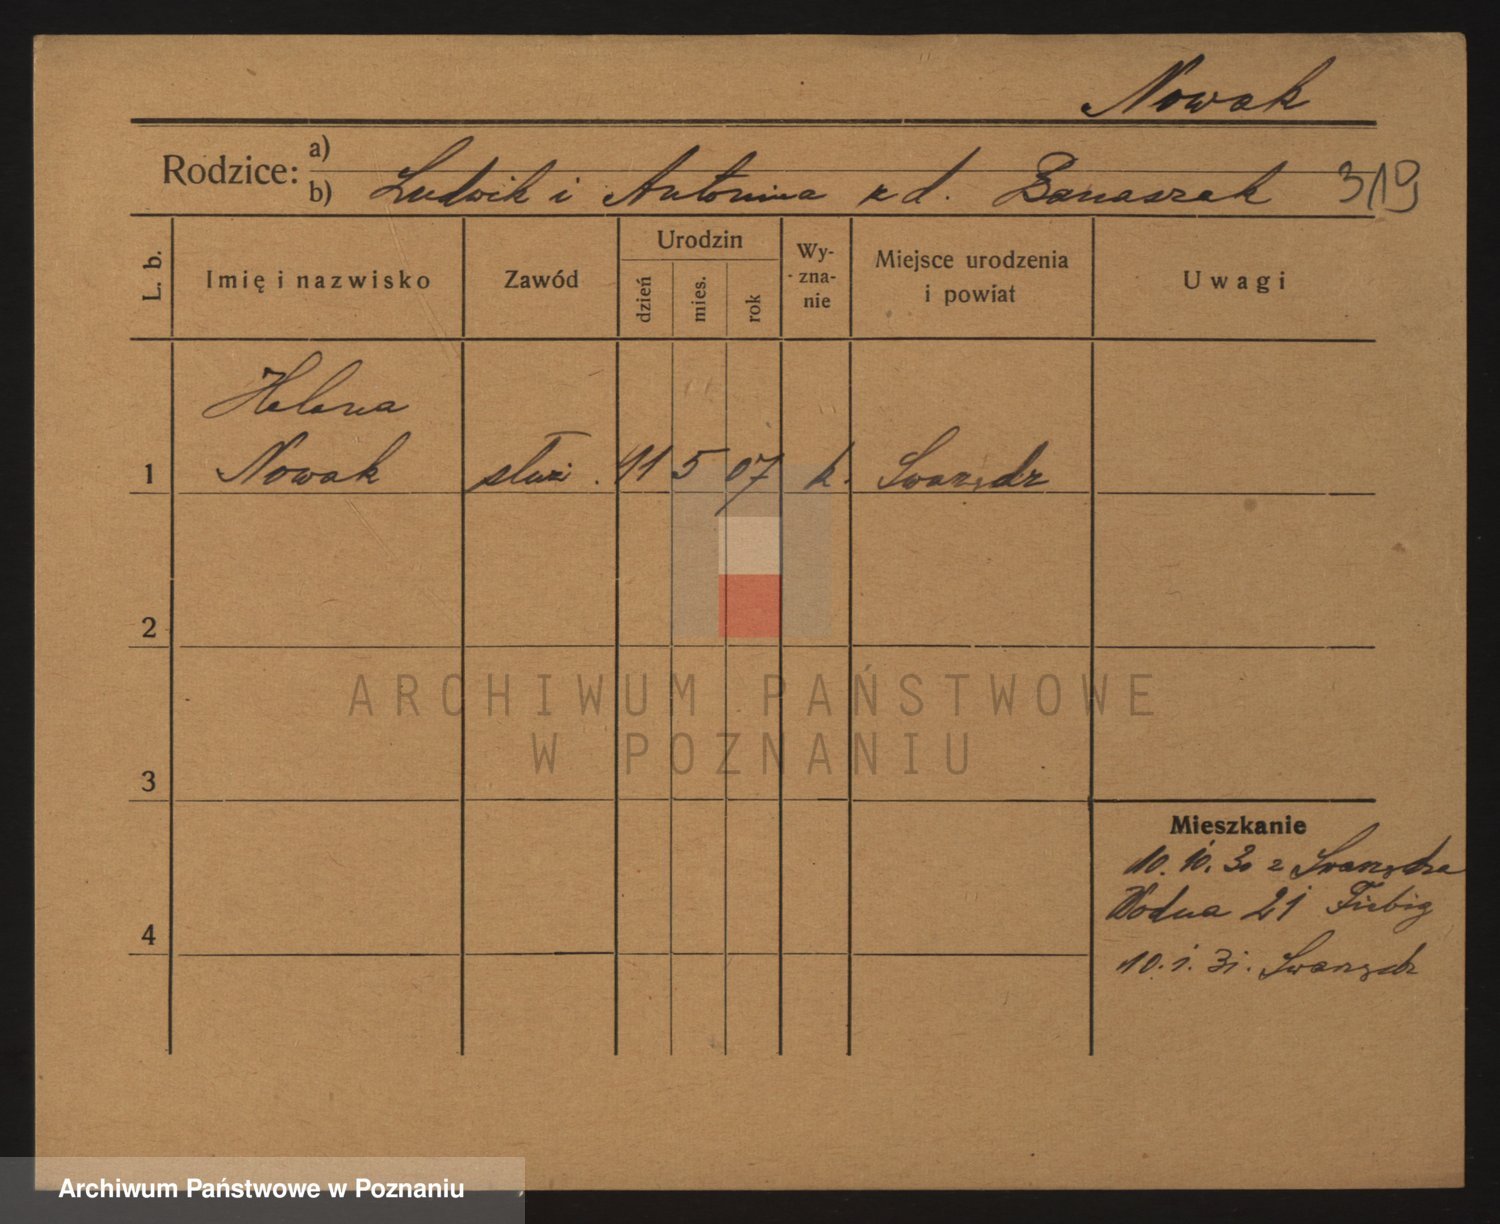 Nowak
Rodzice: a)
b) Ludwik i Antonina z d. Banaszak 319
L. b. Imię i nazwisko Zawód Urodzin dzień mies. rok Wy- zna- nie Miejsce urodzenia i powiat Uwagi
Helena
1 Nowak służ. 11 5 07 k. Swarzędz
2
ARCHIWUM PAŃSTWOWE
W POZNANIU
3
Mieszkanie
10. 10. 30 z Swarzędza
Wodna 21 Fiebig
4
10. 1. 31. Swarzędz
Archiwum Państwowe w Poznaniu